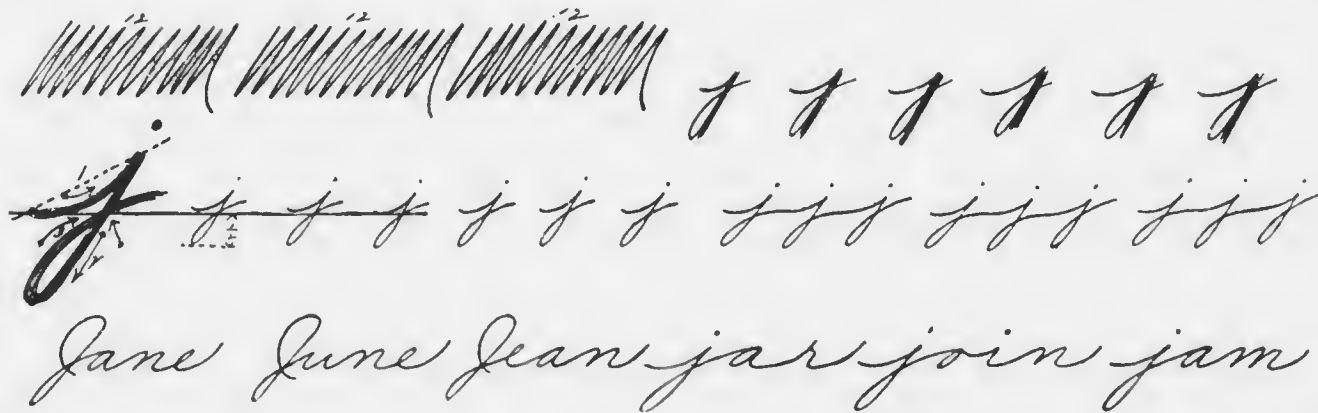 12 12 12
j j j j j j
j j j j j j j jjj jjj jjj
Jane June Jean jar join jam